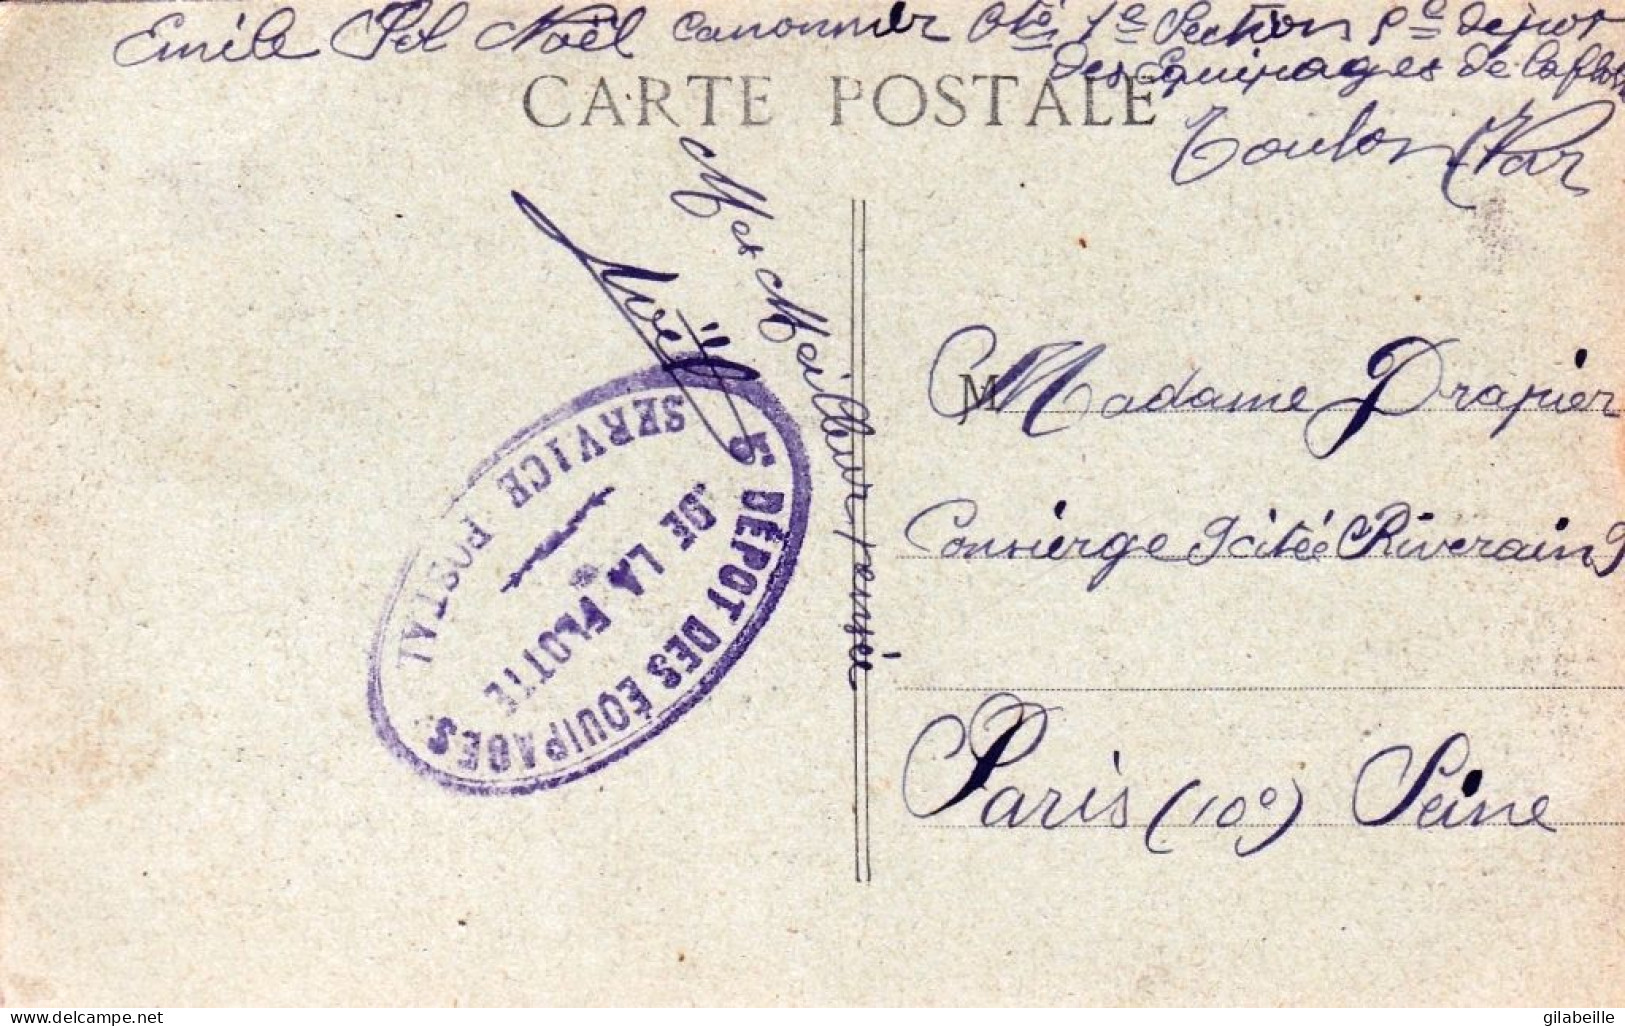 Emile Pol Noël canonnier 7e Section 5e depot
des Equipages de la flotte
Toulon (Var
CARTE POSTALE
Mes Meilleur pensée
Noël
5 DÉPOT DES ÉQUIPAGES
DE LA FLOTTE
SERVICE POSTAL
M Madame Drapier
Consierge 9 citée Riverain 9
Paris (10e) Seine
gilabeille